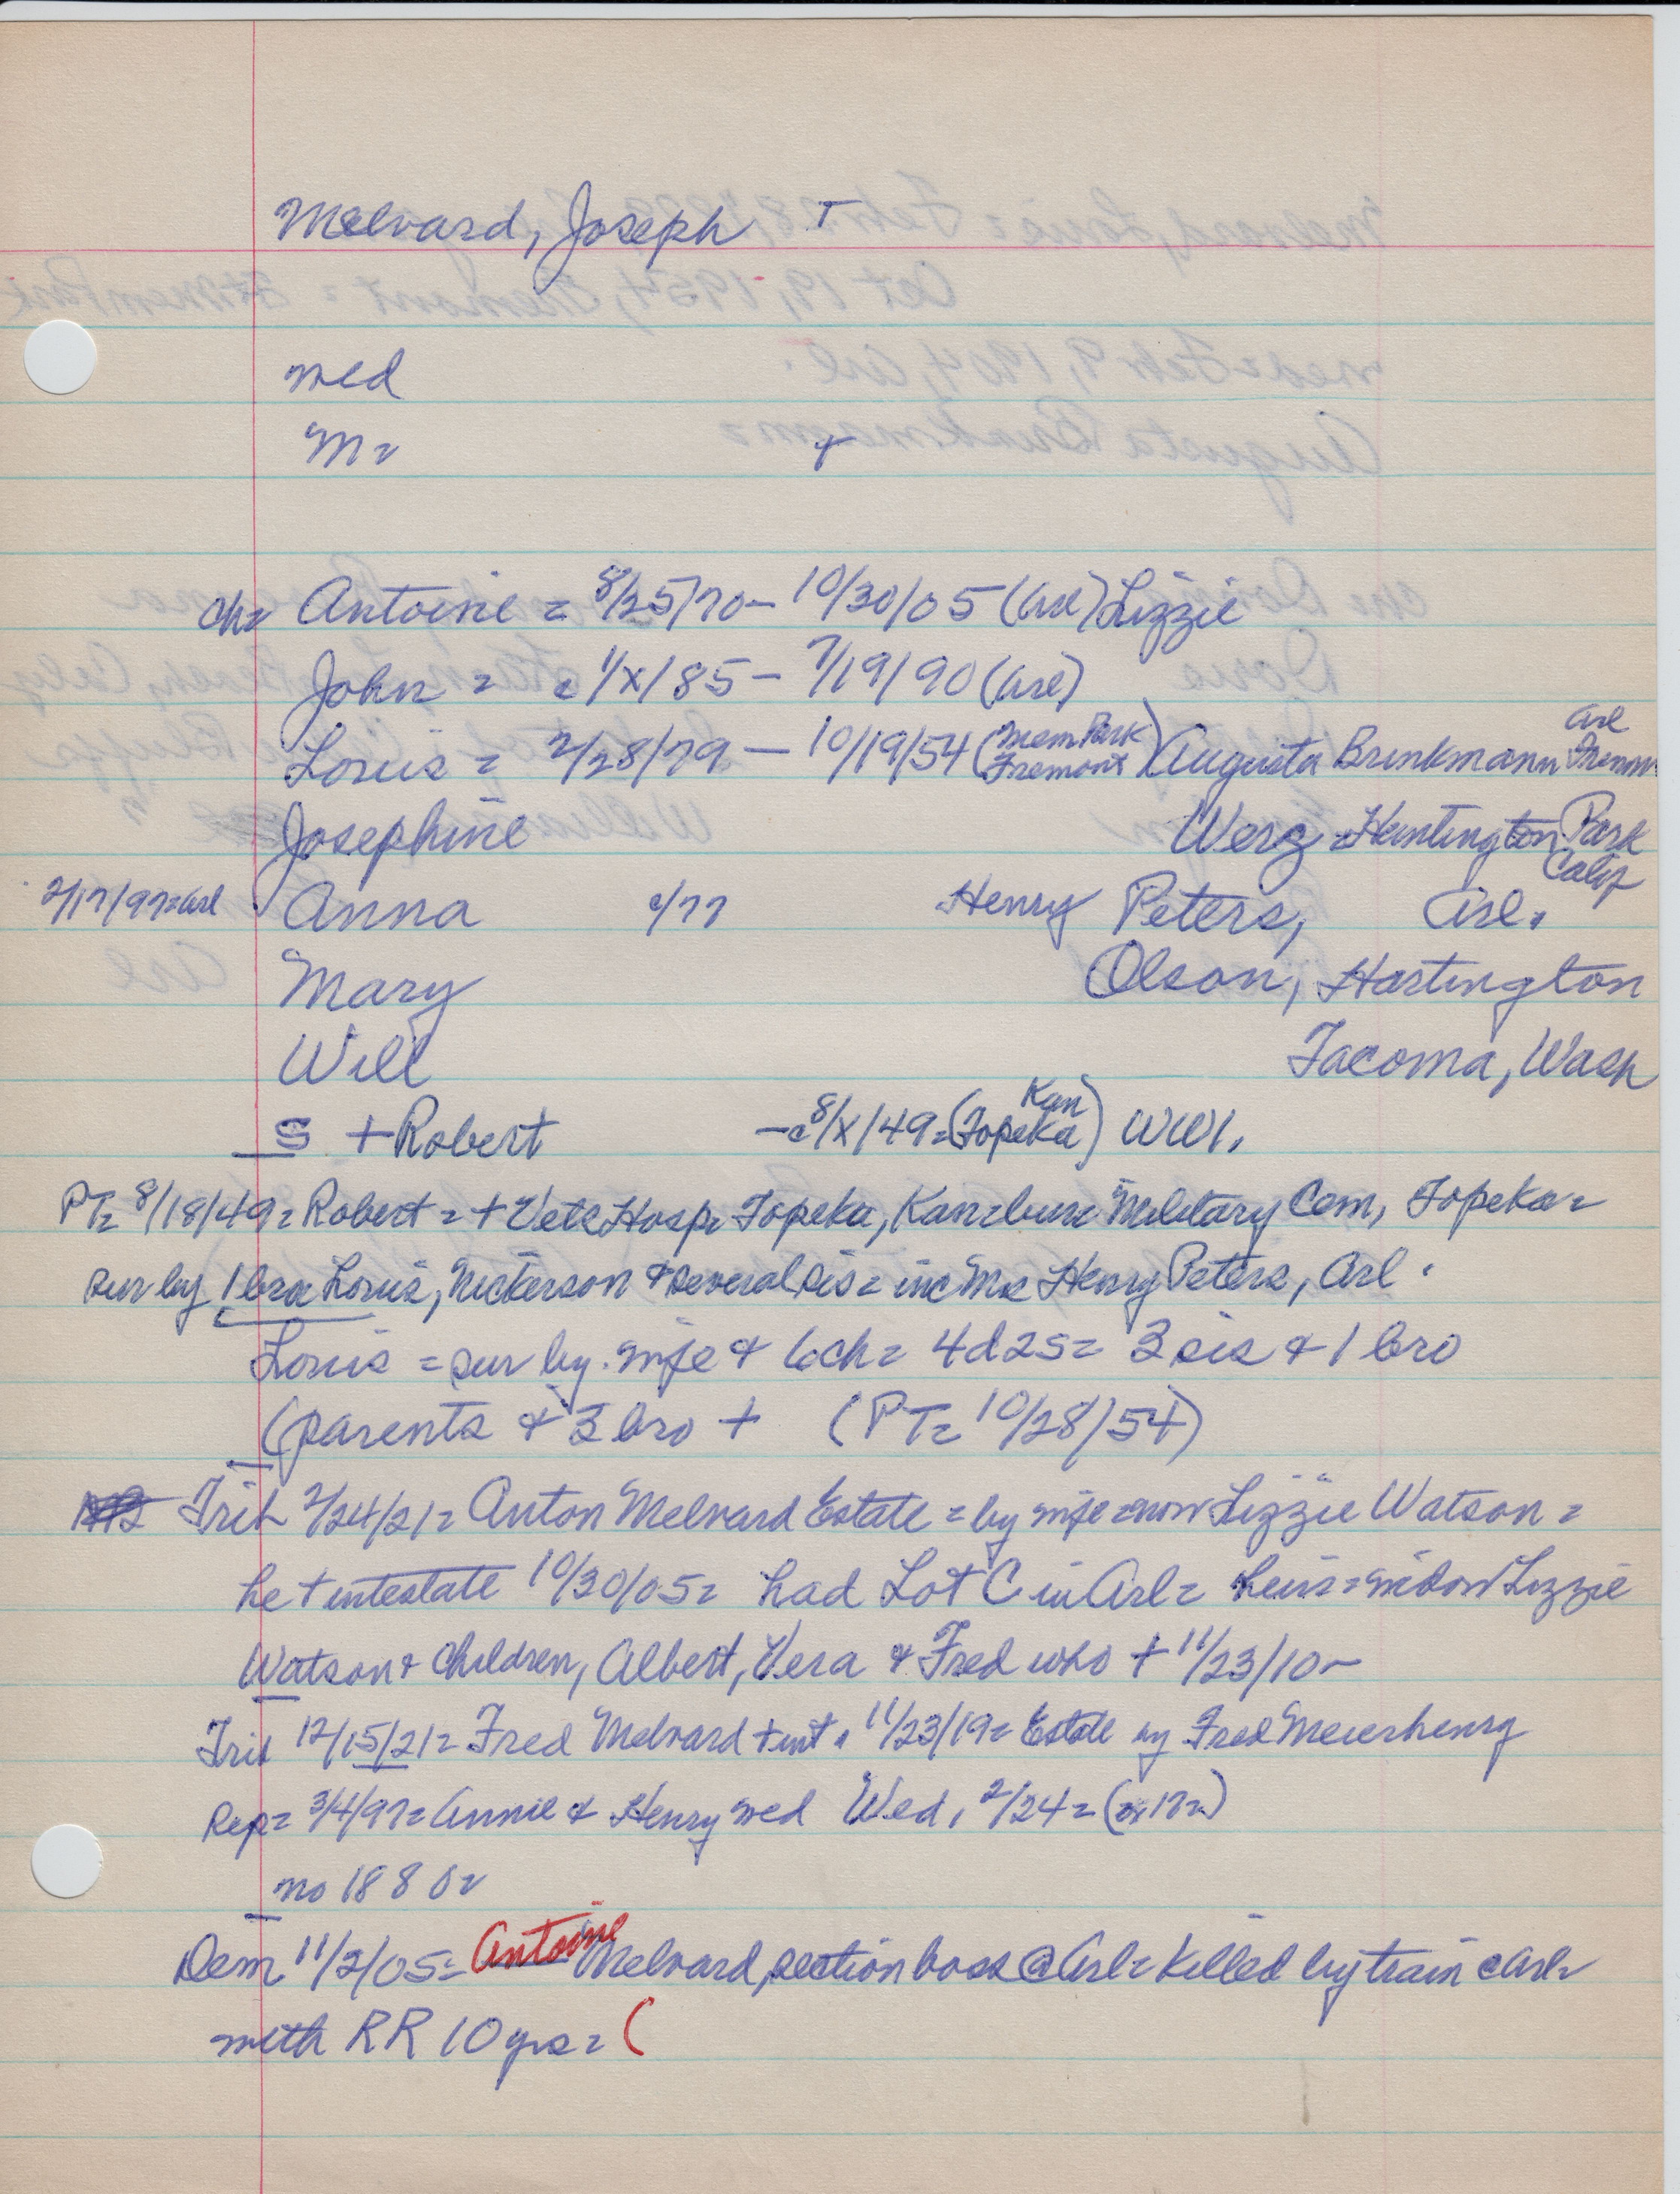 Melvard, Joseph T
wed
M =
+
ch= Antoine = 8/25/70 - 10/30/05 (Arl) Lizzie
John = c 1/x/85 - 7/19/90 (Arl)
Louis = 2/28/79 - 10/19/54 (Mem Park Fremont) Augusta Brinkmann Arl Fremon
Josephine Werz = Huntington Park Calif
2/17/97=Arl Anna c/77 Henry Peters, Arl.
Mary Olson, Hartington
Will Tacoma, Wash
S + Robert - c 8/x/49 = (Topeka Kan) WW1.
PT= 8/18/49= Robert = + Vets Hosp= Topeka, Kan=bur= Military Cem, Topeka=
sur by 1 bro Louis, Nickerson & several sis = inc Mrs Henry Peters, Arl.
Louis = sur by wife & 6ch= 4d 2s= 3 sis & 1 bro
(parents & 3 bro + (PT= 10/28/54)
Trib 2/24/21= Anton Melvard Estate = by wife = now Lizzie Watson =
he + intestate 10/30/05= had Lot C in Arl= heirs = widow Lizzie
Watson & children, Albert, Vera & Fred who + 11/23/10 -
Trib 12/15/21= Fred Melvard + int. 11/23/19= Estate by Fred Meierhenry
Rep= 3/4/97= Annie & Henry wed Wed, 2/24 = (or 17=)
no 1880=
Dem 11/2/05= Antoine Melvard, section boss @ Arl= killed by train @ Arl=
with RR 10 yrs = (